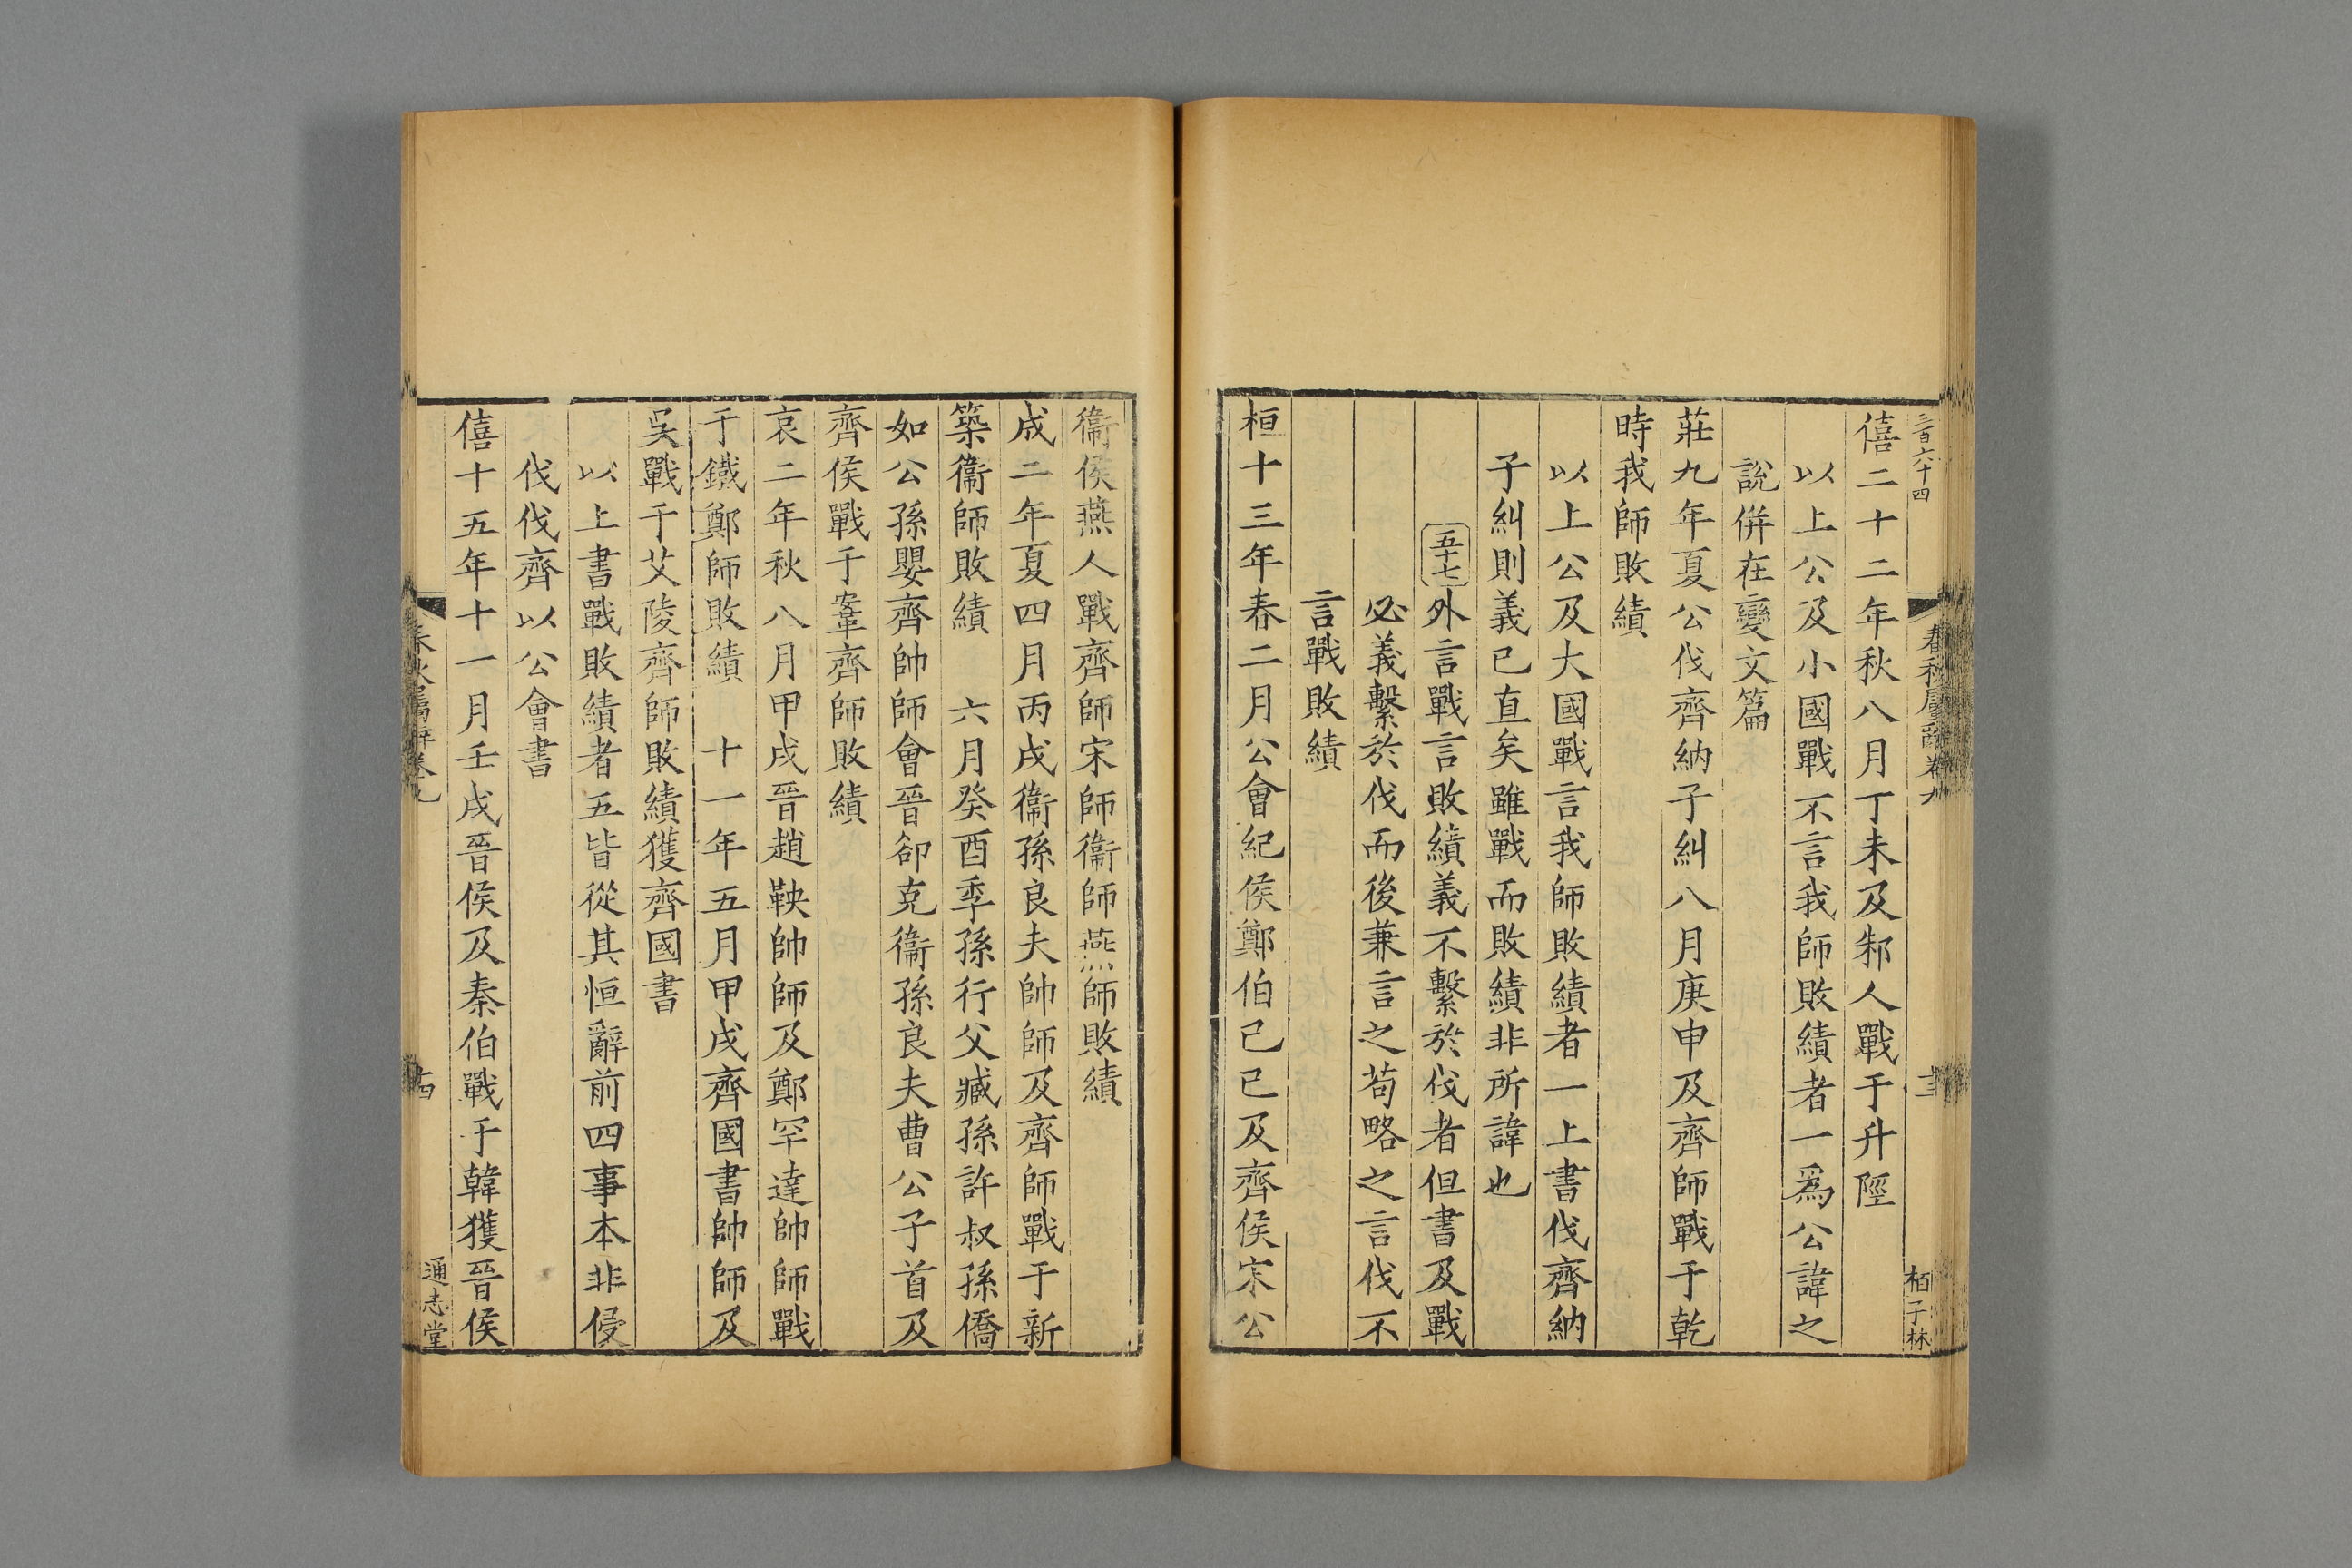 三百六十四
春秋屬辭卷九
十三
栢子林
僖二十二年秋八月丁未及邾人戰于升陘
以上公及小國戰不言我師敗績者一爲公諱之
說併在變文篇
莊九年夏公伐齊納子糾八月庚申及齊師戰于乾
時我師敗績
以上公及大國戰言我師敗績者一上書伐齊納
子糾則義已直矣雖戰而敗績非所諱也
五十七外言戰言敗績義不繫於伐者但書及戰
必義繫於伐而後兼言之茍略之言伐不
言戰敗績
桓十三年春二月公會紀侯鄭伯己巳及齊侯宋公
衞侯燕人戰齊師宋師衞師燕師敗績
成二年夏四月丙戌衞孫良夫帥師及齊師戰于新
築衞師敗績 六月癸酉季孫行父臧孫許叔孫僑
如公孫嬰齊帥師會晉郤克衞孫良夫曹公子首及
齊侯戰于鞌齊師敗績
哀二年秋八月甲戌晉趙鞅帥師及鄭罕達帥師戰
于鐵鄭師敗績 十一年五月甲戌齊國書帥師及
吳戰于艾陵齊師敗績獲齊國書
以上書戰敗績者五皆從其恒辭前四事本非侵
伐伐齊以公會書
僖十五年十一月壬戌晉侯及秦伯戰于韓獲晉侯
春秋屬辭卷九
十四
通志堂